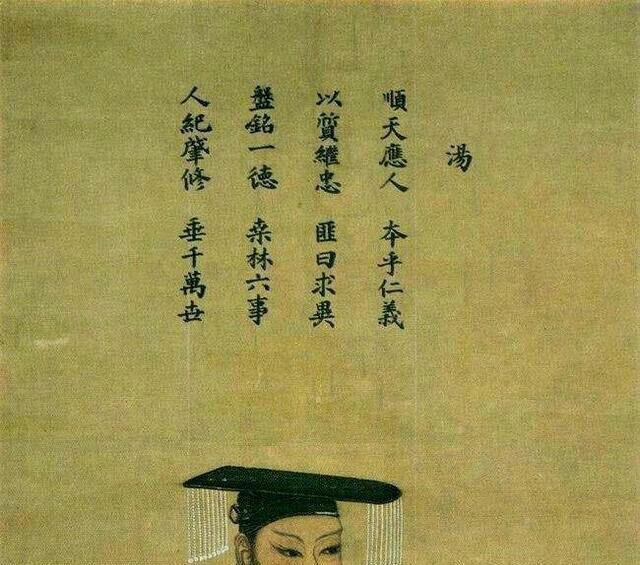 湯
順天應人 本乎仁義
以質繼忠 匪曰求異
盤銘一德 桒林六事
人紀肇修 垂千萬世